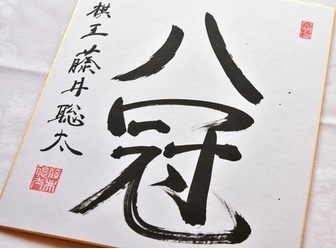 八冠
棋王 藤井聡太